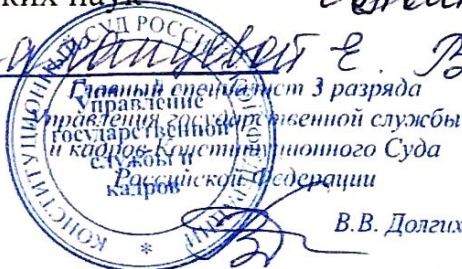 ких наук
Е. В
Главный специалист 3 разряда
Управления государственной службы
и кадров Конституционного Суда
Российской Федерации
В.В. Долгих
КОНСТИТУЦИОННЫЙ СУД РОССИЙСКОЙ ФЕДЕРАЦИИ
*
Управление
государственной
службы и
кадров